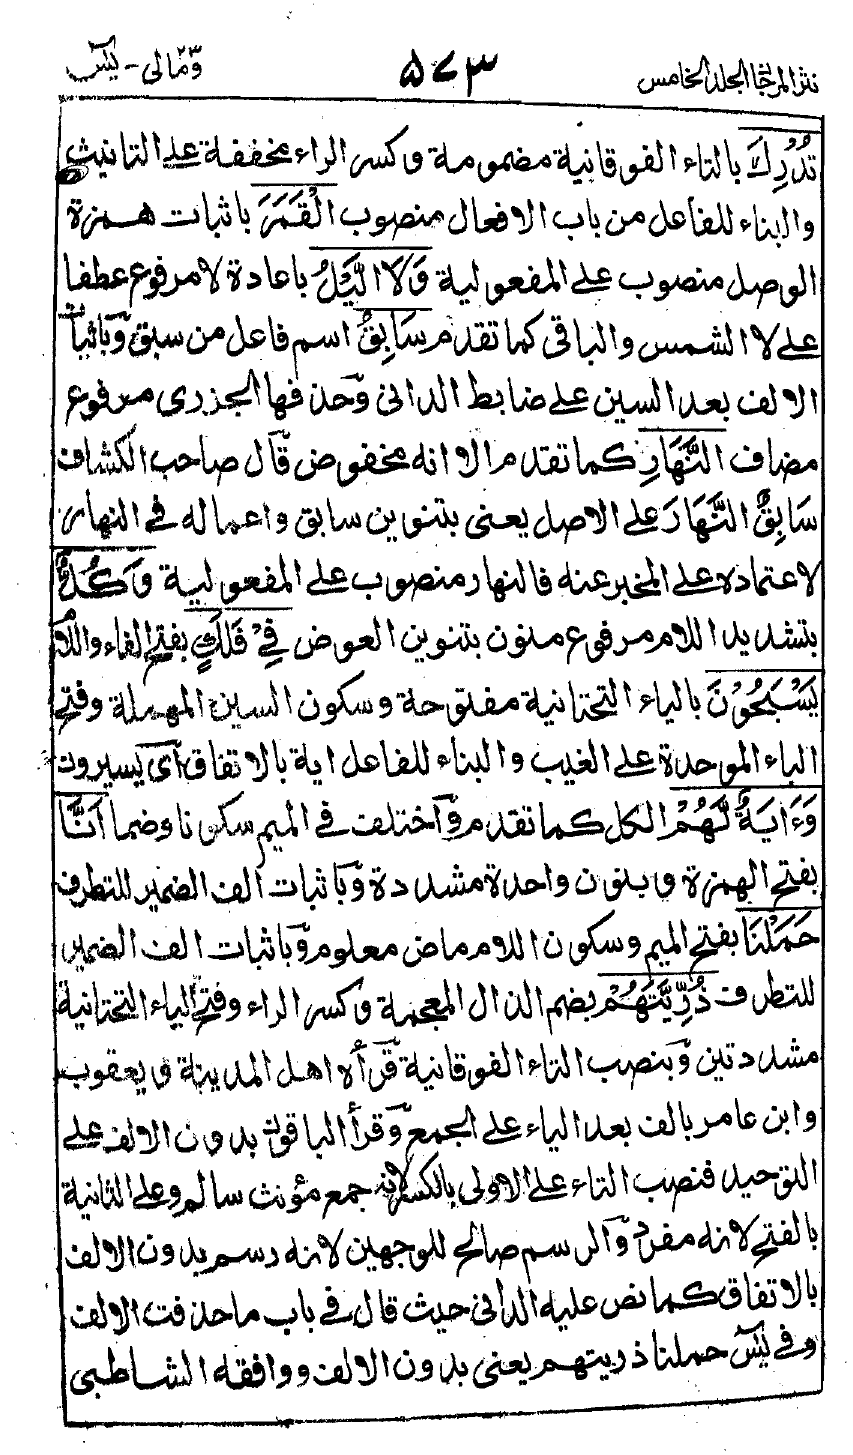 نثر المرجان الجلد الخامس ٥٧٣ ومالى - يس
تُدْرِكَ بالتاء الفوقانية مضمومة وكسر الراء مخففة على التانيث
والبناء للفاعل من باب الافعال منصوب الْقَمَرَ باثبات همزة
الوصل منصوب على المفعولية وَلَا الَّيْلُ باعادة لا مرفوع عطفا
على لا الشمس والباقى كما تقدم سَابِقُ اسم فاعل من سبق وباثبات
الالف بعد السين على ضابط الدانى وحذفها الجزرى مرفوع
مضاف النَّهَارِ كما تقدم الا انه مخفوض قال صاحب الكشاف
سَابِقٌ النَّهَارَ على الاصل يعنى بتنوين سابق واعماله فى النهار
لاعتماده على المخبر عنه فالنهار منصوب على المفعولية وَكُلٌّ
بتشديد اللام مرفوع منون بتنوين العوض فِيْ فَلَكٍ بفتح الفاء واللام
يَسْبَحُوْنَ بالياء التحتانية مفتوحة وسكون السين المهملة وفتح
الباء الموحدة على الغيب والبناء للفاعل اية بالاتفاق اى يسيرون
وَءَايَةٌ لَّهُمْ الكل كما تقدم واختلف فى الميم سكونا وضما اَنَّا
بفتح الهمزة وبنون واحدة مشددة وباثبات الف الضمير للتطرف
حَمَلْنَا بفتح الميم وسكون اللام ماض معلوم وباثبات الف الضمير
للتطرف ذُرِّيَّتَهُمْ بضم الذال المعجمة وكسر الراء وفتح الياء التحتانية
مشددتين وبنصب التاء الفوقانية قرأه اهل المدينة ويعقوب
وابن عامر بالف بعد الياء على الجمع وقرأ الباقون بدون الالف على
التوحيد فنصب التاء على الاولى بالكسر لانه جمع مؤنث سالم وعلى الثانية
بالفتح لانه مفرد والرسم صالح للوجهين لانه رسم بدون الالف
بالاتفاق كما نص عليه الدانى حيث قال فى باب ما حذفت الالف
وفى يس حملنا ذريتهم يعنى بدون الالف ووافقه الشاطبى